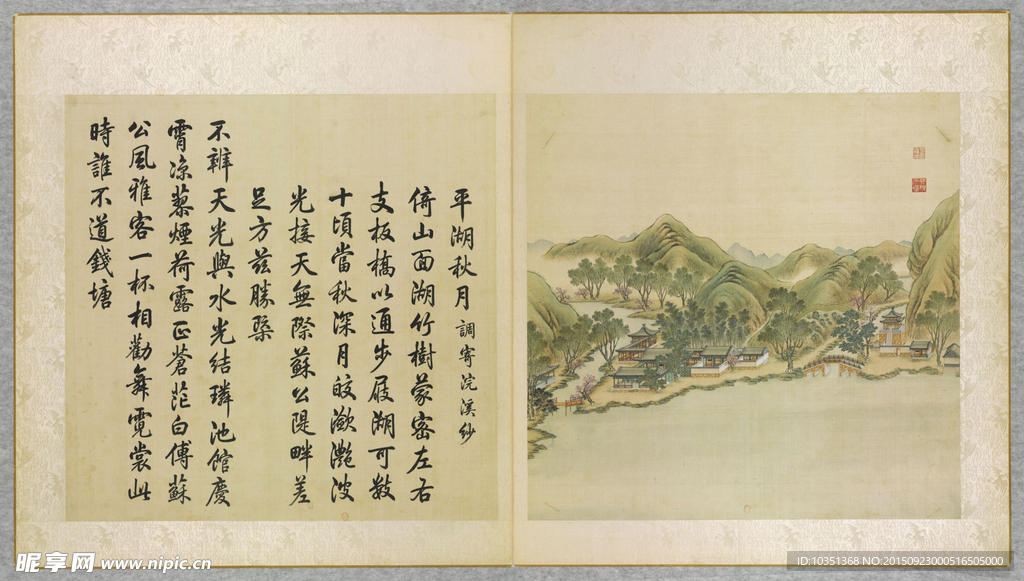 平湖秋月 調寄浣溪紗
倚山面湖竹樹蒙密左右
支板橋以通步屐湖可數
十頃當秋深月皎瀲灧波
光接天無際蘇公隄畔差
足方茲勝槩
不辨天光與水光結璘池館慶
霄凉蓼煙荷露正蒼茫白傅蘇
公風雅客一杯相勸舞霓裳此
時誰不道錢塘
昵享网 www.nipic.cn
ID:10351368 NO:20150923000516505000